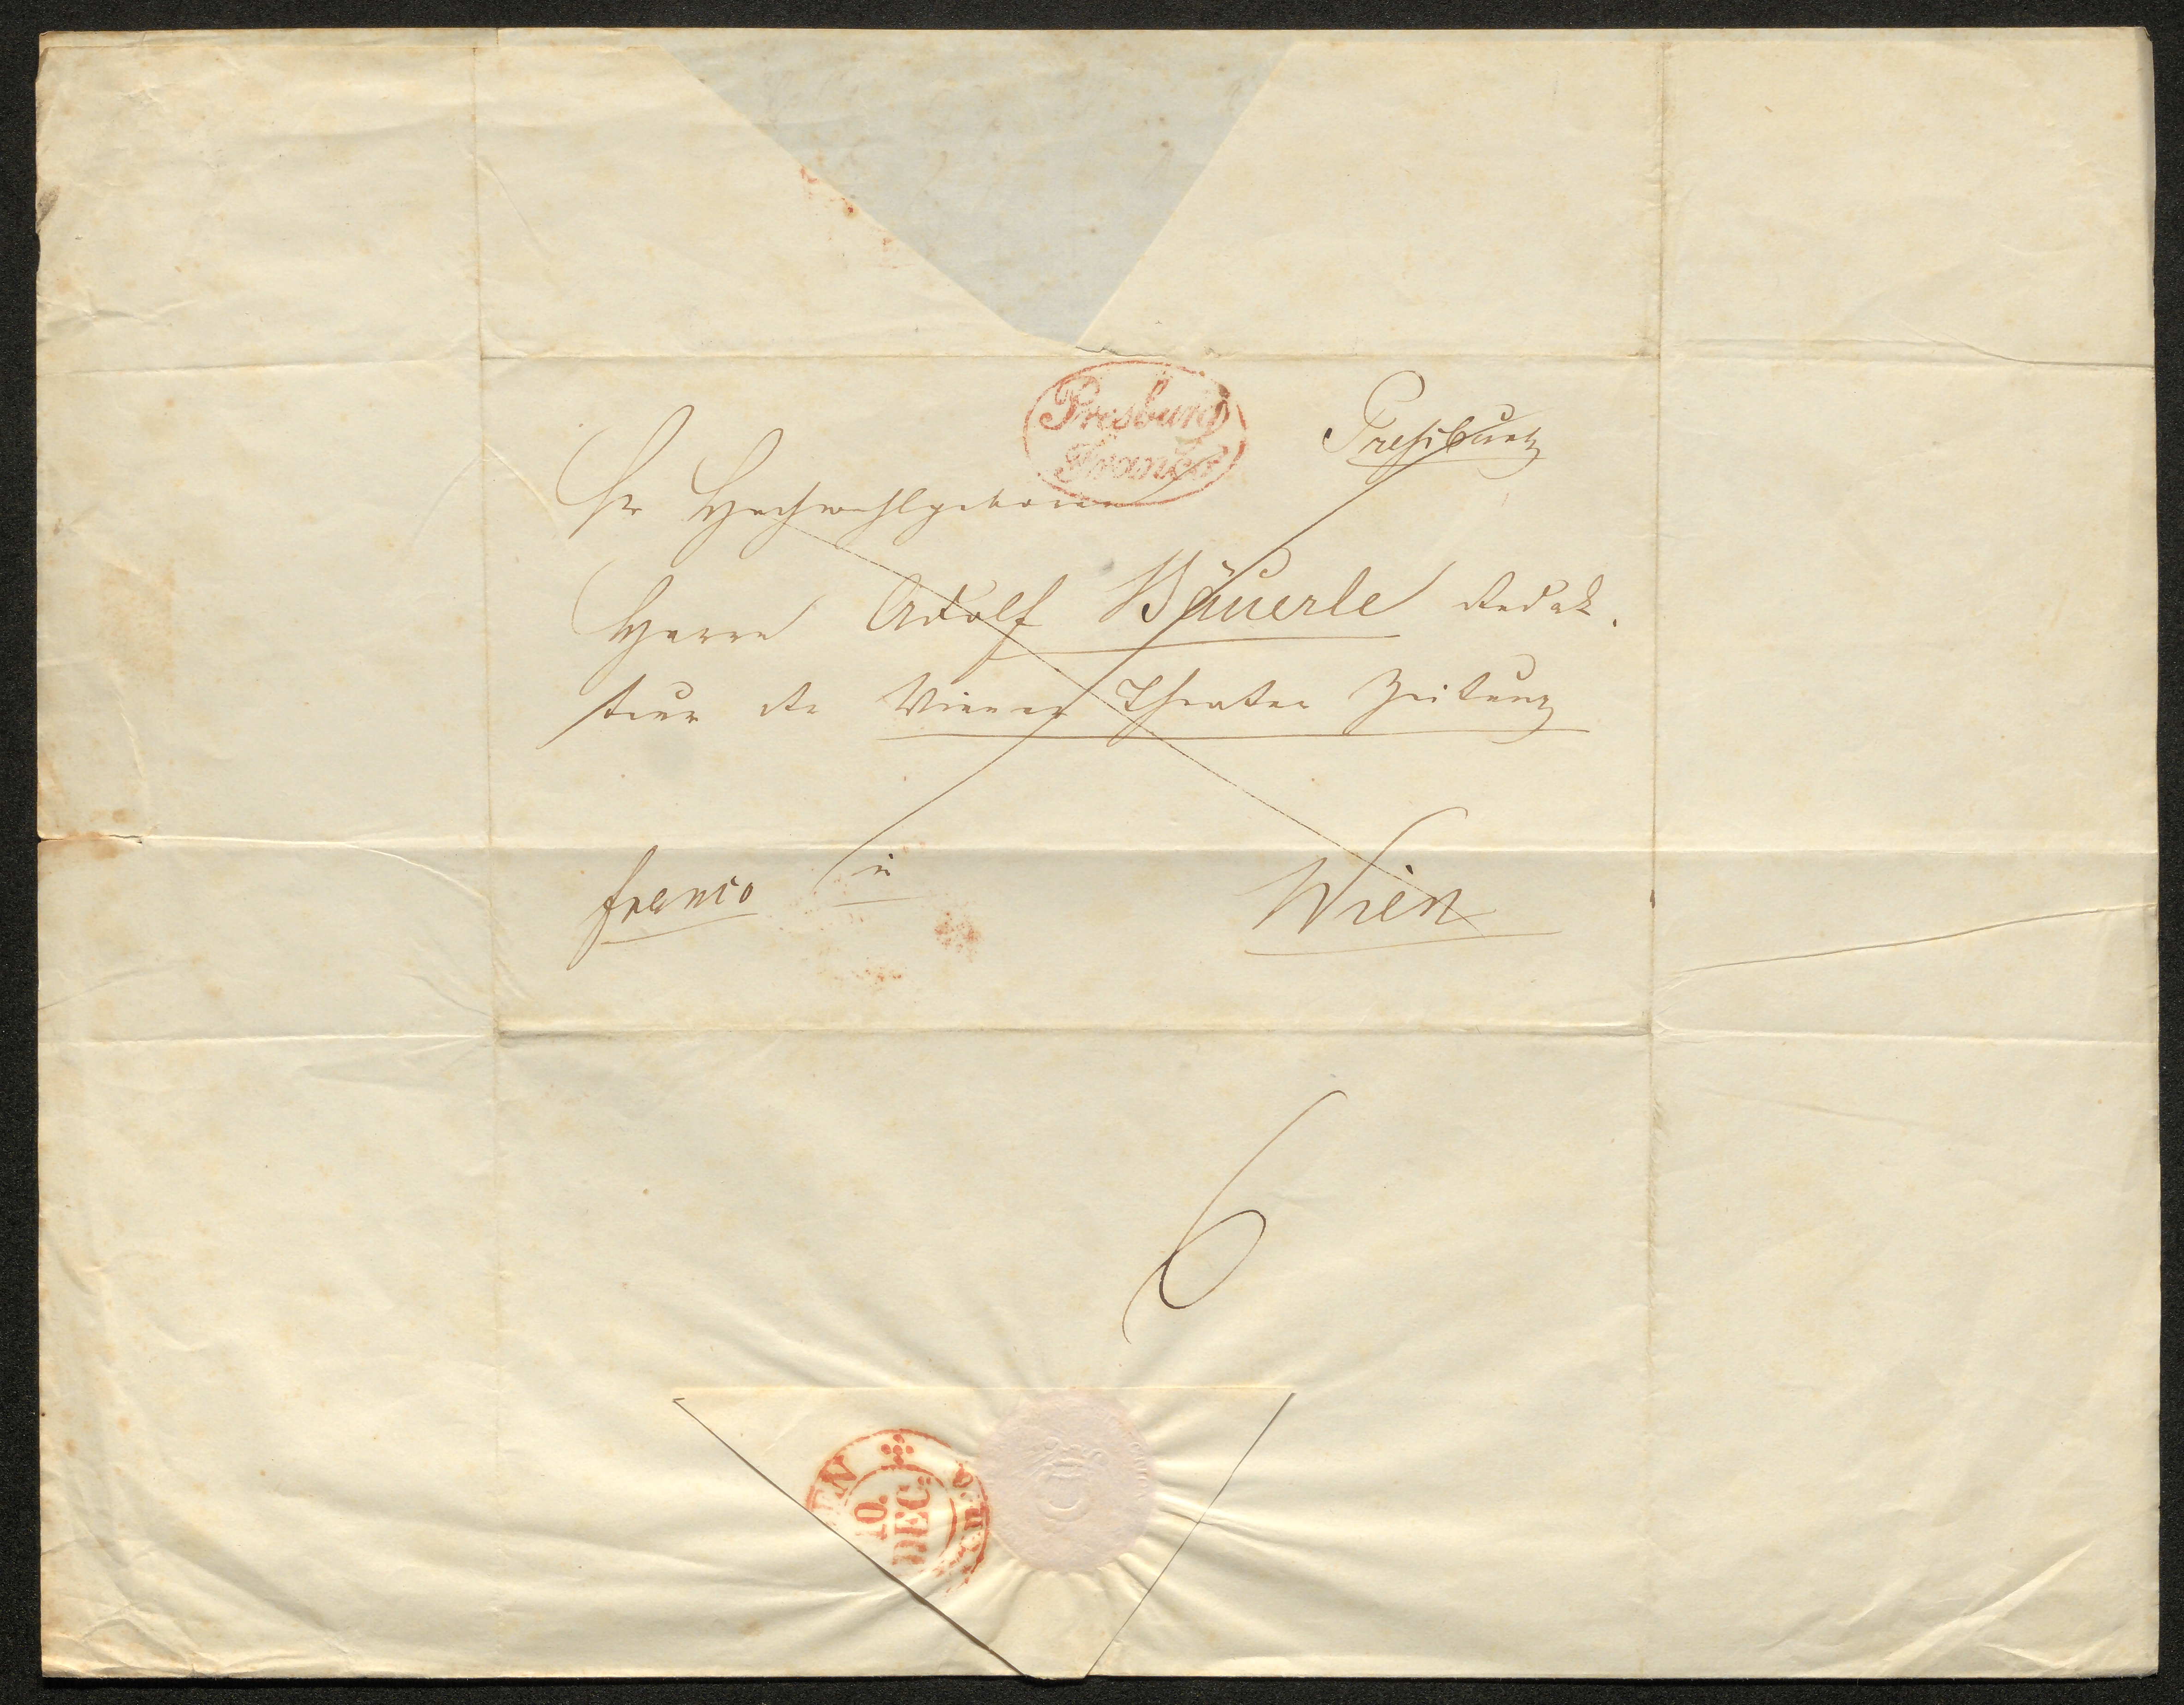 Presburg
Franco
Preßburg
Sr Hochwohlgeboren
Herrn Adolf Bäuerle Redak.
teur der Wiener Theater Zeitung
franco in Wien
6
10.
DEC: